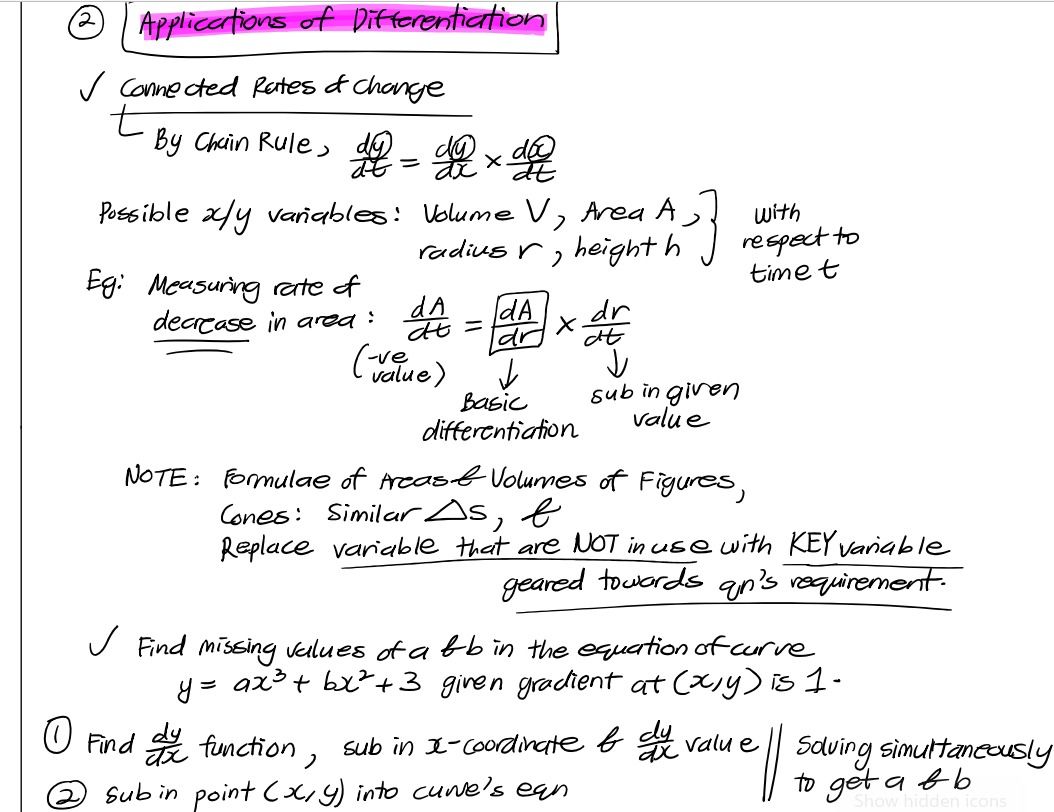 ② Applications of Differentiation
✓ Connected Rates of Change
By Chain Rule, dy/dt = dy/dx × dx/dt
Possible x/y variables: Volume V, Area A, } with
radius r, height h respect to
time t
Eg: Measuring rate of
decrease in area: dA/dt = dA/dr × dr/dt
(-ve value) ↓ ↓
Basic sub in given
differentiation value
NOTE: Formulae of Areas & Volumes of Figures,
Cones: Similar △s, &
Replace variable that are NOT in use with KEY variable
geared towards qn's requirement.
✓ Find missing values of a & b in the equation of curve
y = ax³ + bx² + 3 given gradient at (x,y) is 1.
① Find dy/dx function, sub in x-coordinate & dy/dx value || Solving simultaneously
② sub in point (x,y) into curve's eqn to get a & b
Show hidden icons